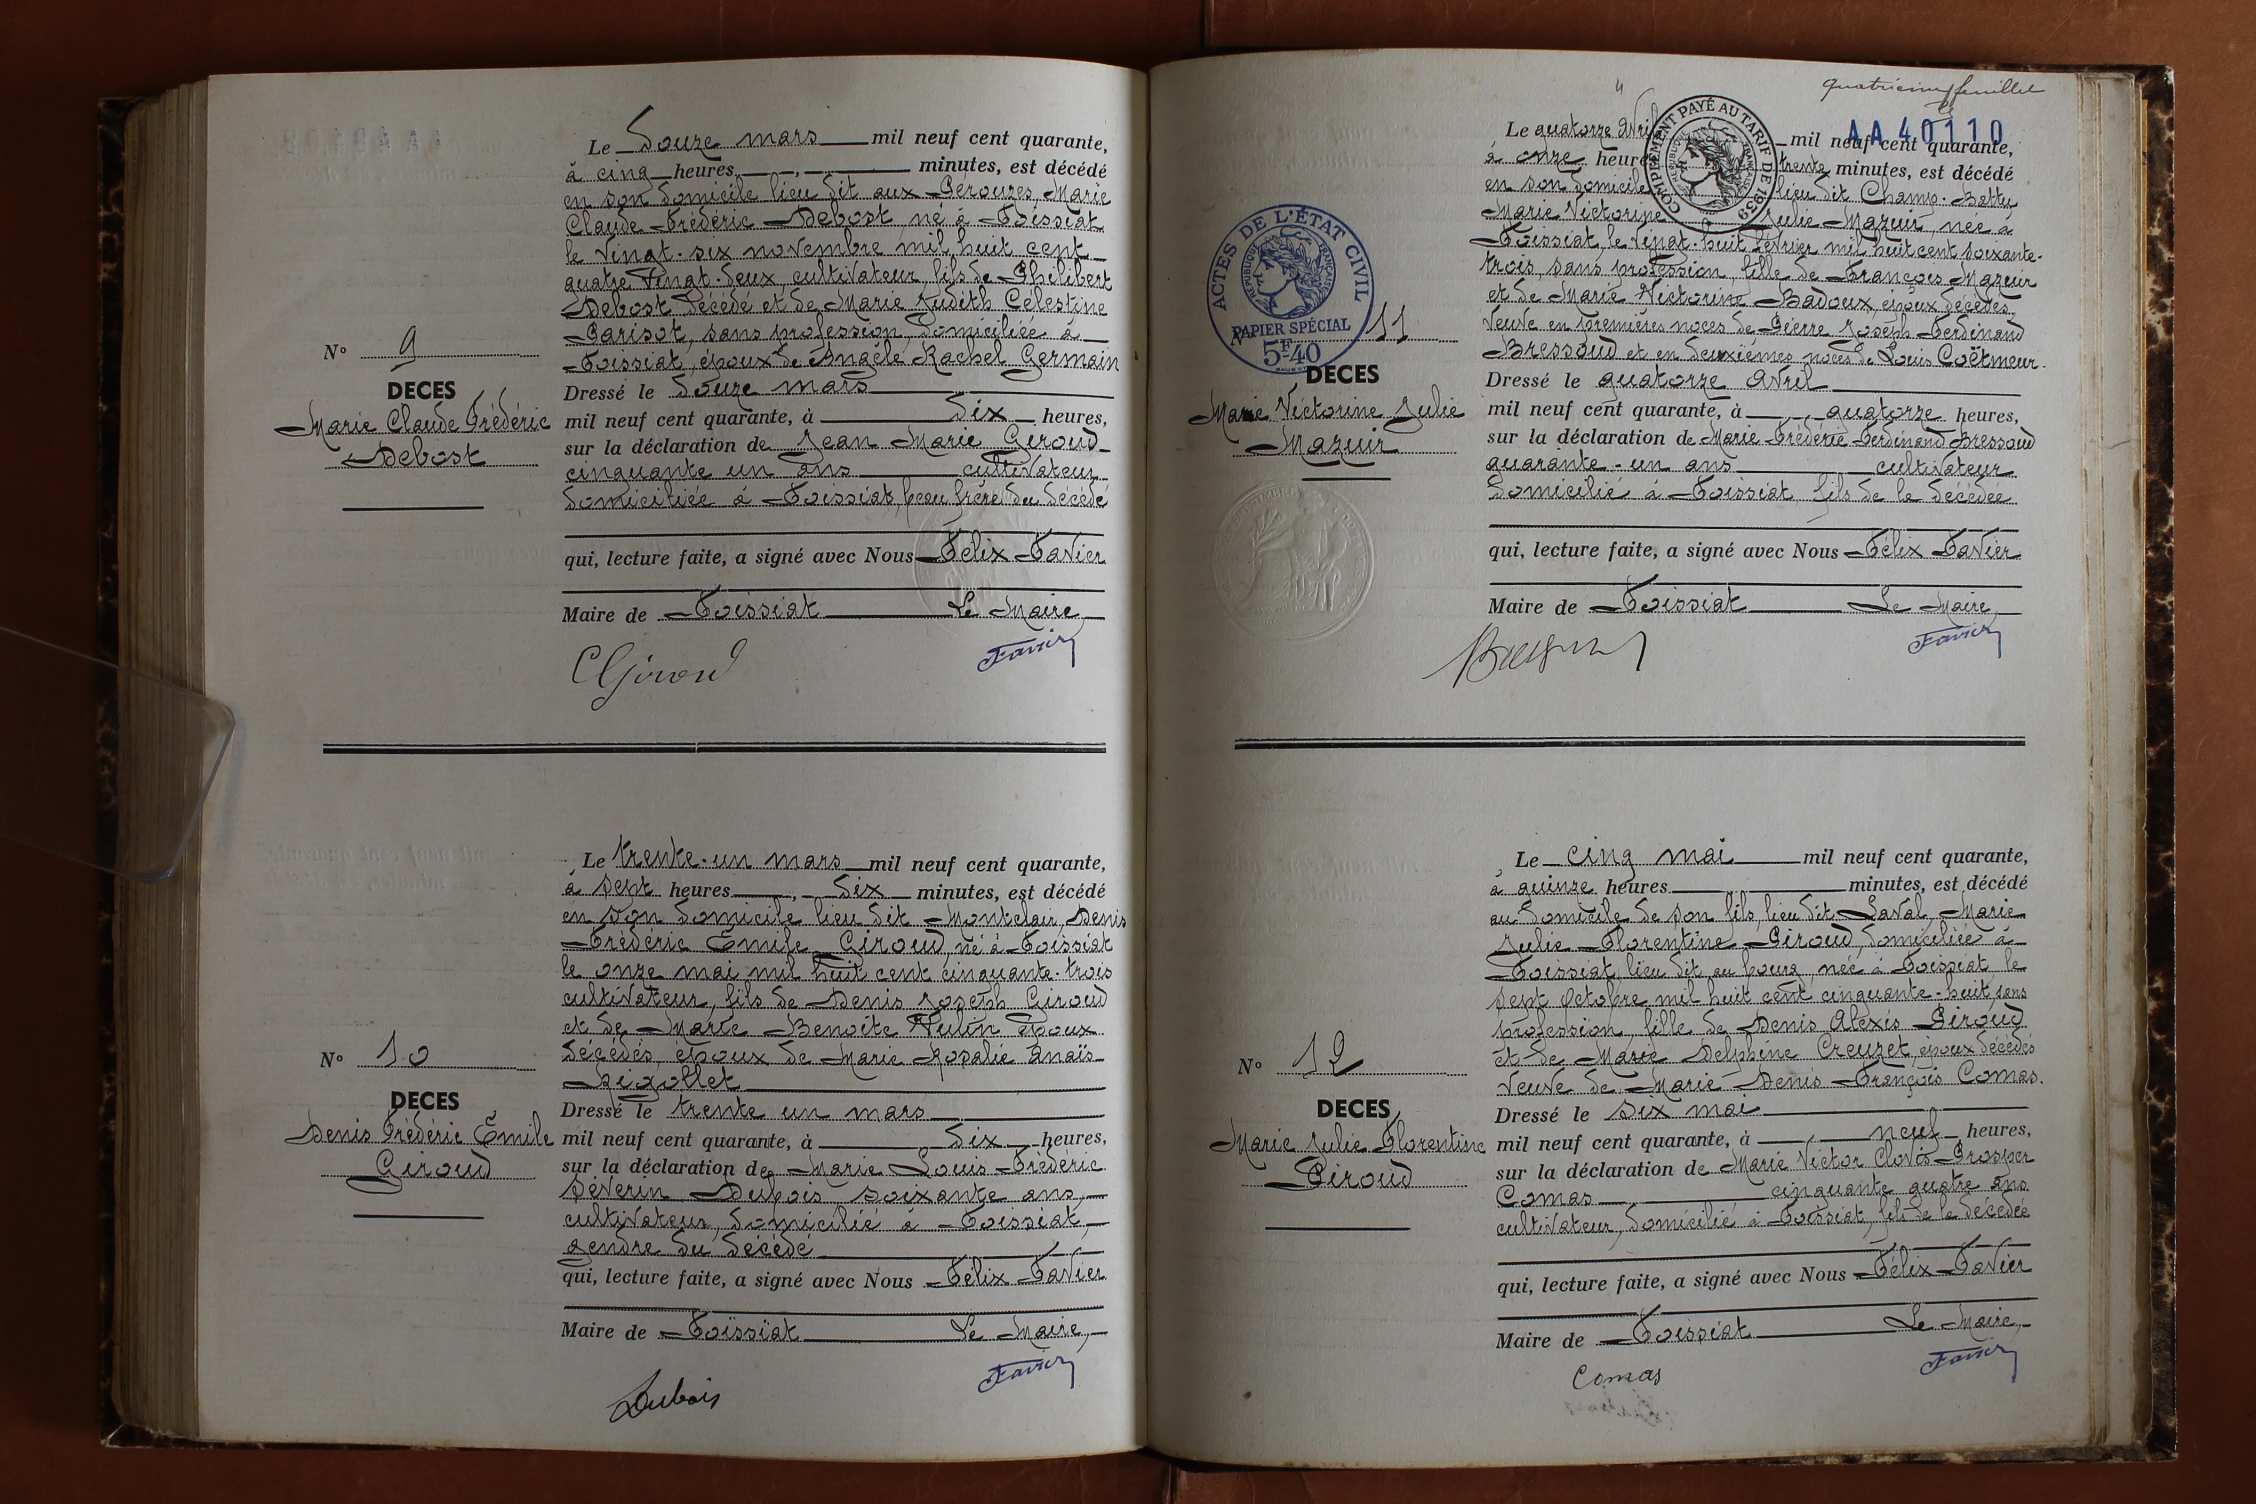 Le Douze mars mil neuf cent quarante,
à cinq heures, minutes, est décédé
en son domicile lieu dit aux Gérouzes, Marie
Claude Frédéric Debost né à Foissiat
le vingt-six novembre mil huit cent
quatre vingt-deux, cultivateur, fils de Philibert
Debost décédé et de Marie Judith Célestine
Parisot, sans profession, domiciliée à
Foissiat, époux de Angèle Rachel Germain
Dressé le douze mars
mil neuf cent quarante, à dix heures,
sur la déclaration de Jean Marie Giroud
cinquante un ans cultivateur
domiciliée à Foissiat, beau frère du décédé
qui, lecture faite, a signé avec Nous Félix Favier
Maire de Foissiat Le Maire
CGiroud Favier
N° 9
DECES
Marie Claude Frédéric
Debost
Le trente-un mars mil neuf cent quarante,
à sept heures, dix minutes, est décédé
en son domicile lieu dit Montclair, Denis
Frédéric Emile Giroud, né à Foissiat
le onze mai mil huit cent cinquante-trois
cultivateur, fils de Denis Joseph Giroud
et de Marie Benoîte Vulin époux
décédés, époux de Marie Rosalie Anaïs
Dressé le trente un mars
mil neuf cent quarante, à dix heures,
sur la déclaration de Marie Louis Frédéric
Séverin Dubois, soixante ans,
cultivateur, domicilié à Foissiat,
gendre du décédé
qui, lecture faite, a signé avec Nous Félix Favier
Maire de Foissiat Le Maire,
Dubois Favier
N° 10
DECES
Denis Frédéric Emile
Giroud
quatrième feuillet
AA 40110
COMPLÉMENT PAYÉ AU TARIF DE 1939
Le quatorze Avril mil neuf cent quarante,
à onze heures trente minutes, est décédé
en son domicile lieu dit Champ-Batty
Marie Victorine Julie Mazuir, née à
Foissiat, le vingt-huit février mil huit cent soixante-
trois, sans profession, fille de François Mazuir
et de Marie Victorine Badoux, époux décédés,
Veuve en premières noces de Pierre Joseph Ferdinand
Bressoud et en deuxièmes noces de Louis Coëtmeur.
Dressé le quatorze Avril
mil neuf cent quarante, à quatorze heures,
sur la déclaration de Marie Frédéric Ferdinand Bressoud
quarante-un ans cultivateur
domicilié à Foissiat, fils de la décédée
qui, lecture faite, a signé avec Nous Félix Favier
Maire de Foissiat Le Maire
Favier
ACTES DE L'ÉTAT CIVIL
RÉPUBLIQUE FRANÇAISE
PAPIER SPÉCIAL
5F40
N° 11
DECES
Marie Victorine Julie
Mazuir
Le cinq mai mil neuf cent quarante,
à quinze heures minutes, est décédé
au domicile de son fils, lieu dit Laval, Marie
Julie Florentine Giroud, domiciliée à
Foissiat, lieu dit au bourg, née à Foissiat le
sept octobre mil huit cent cinquante-huit sans
profession, fille de Denis Alexis Giroud
et de Marie Delphine Creuzet, époux décédés
veuve de Marie Denis François Comas.
Dressé le six mai
mil neuf cent quarante, à neuf heures,
sur la déclaration de Marie Victor Clovis Prosper
Comas cinquante quatre ans
cultivateur, domicilié à Foissiat, fils de la décédée
qui, lecture faite, a signé avec Nous Félix Favier
Maire de Foissiat Le Maire,
Comas Favier
N° 12
DECES
Marie Julie Florentine
Giroud